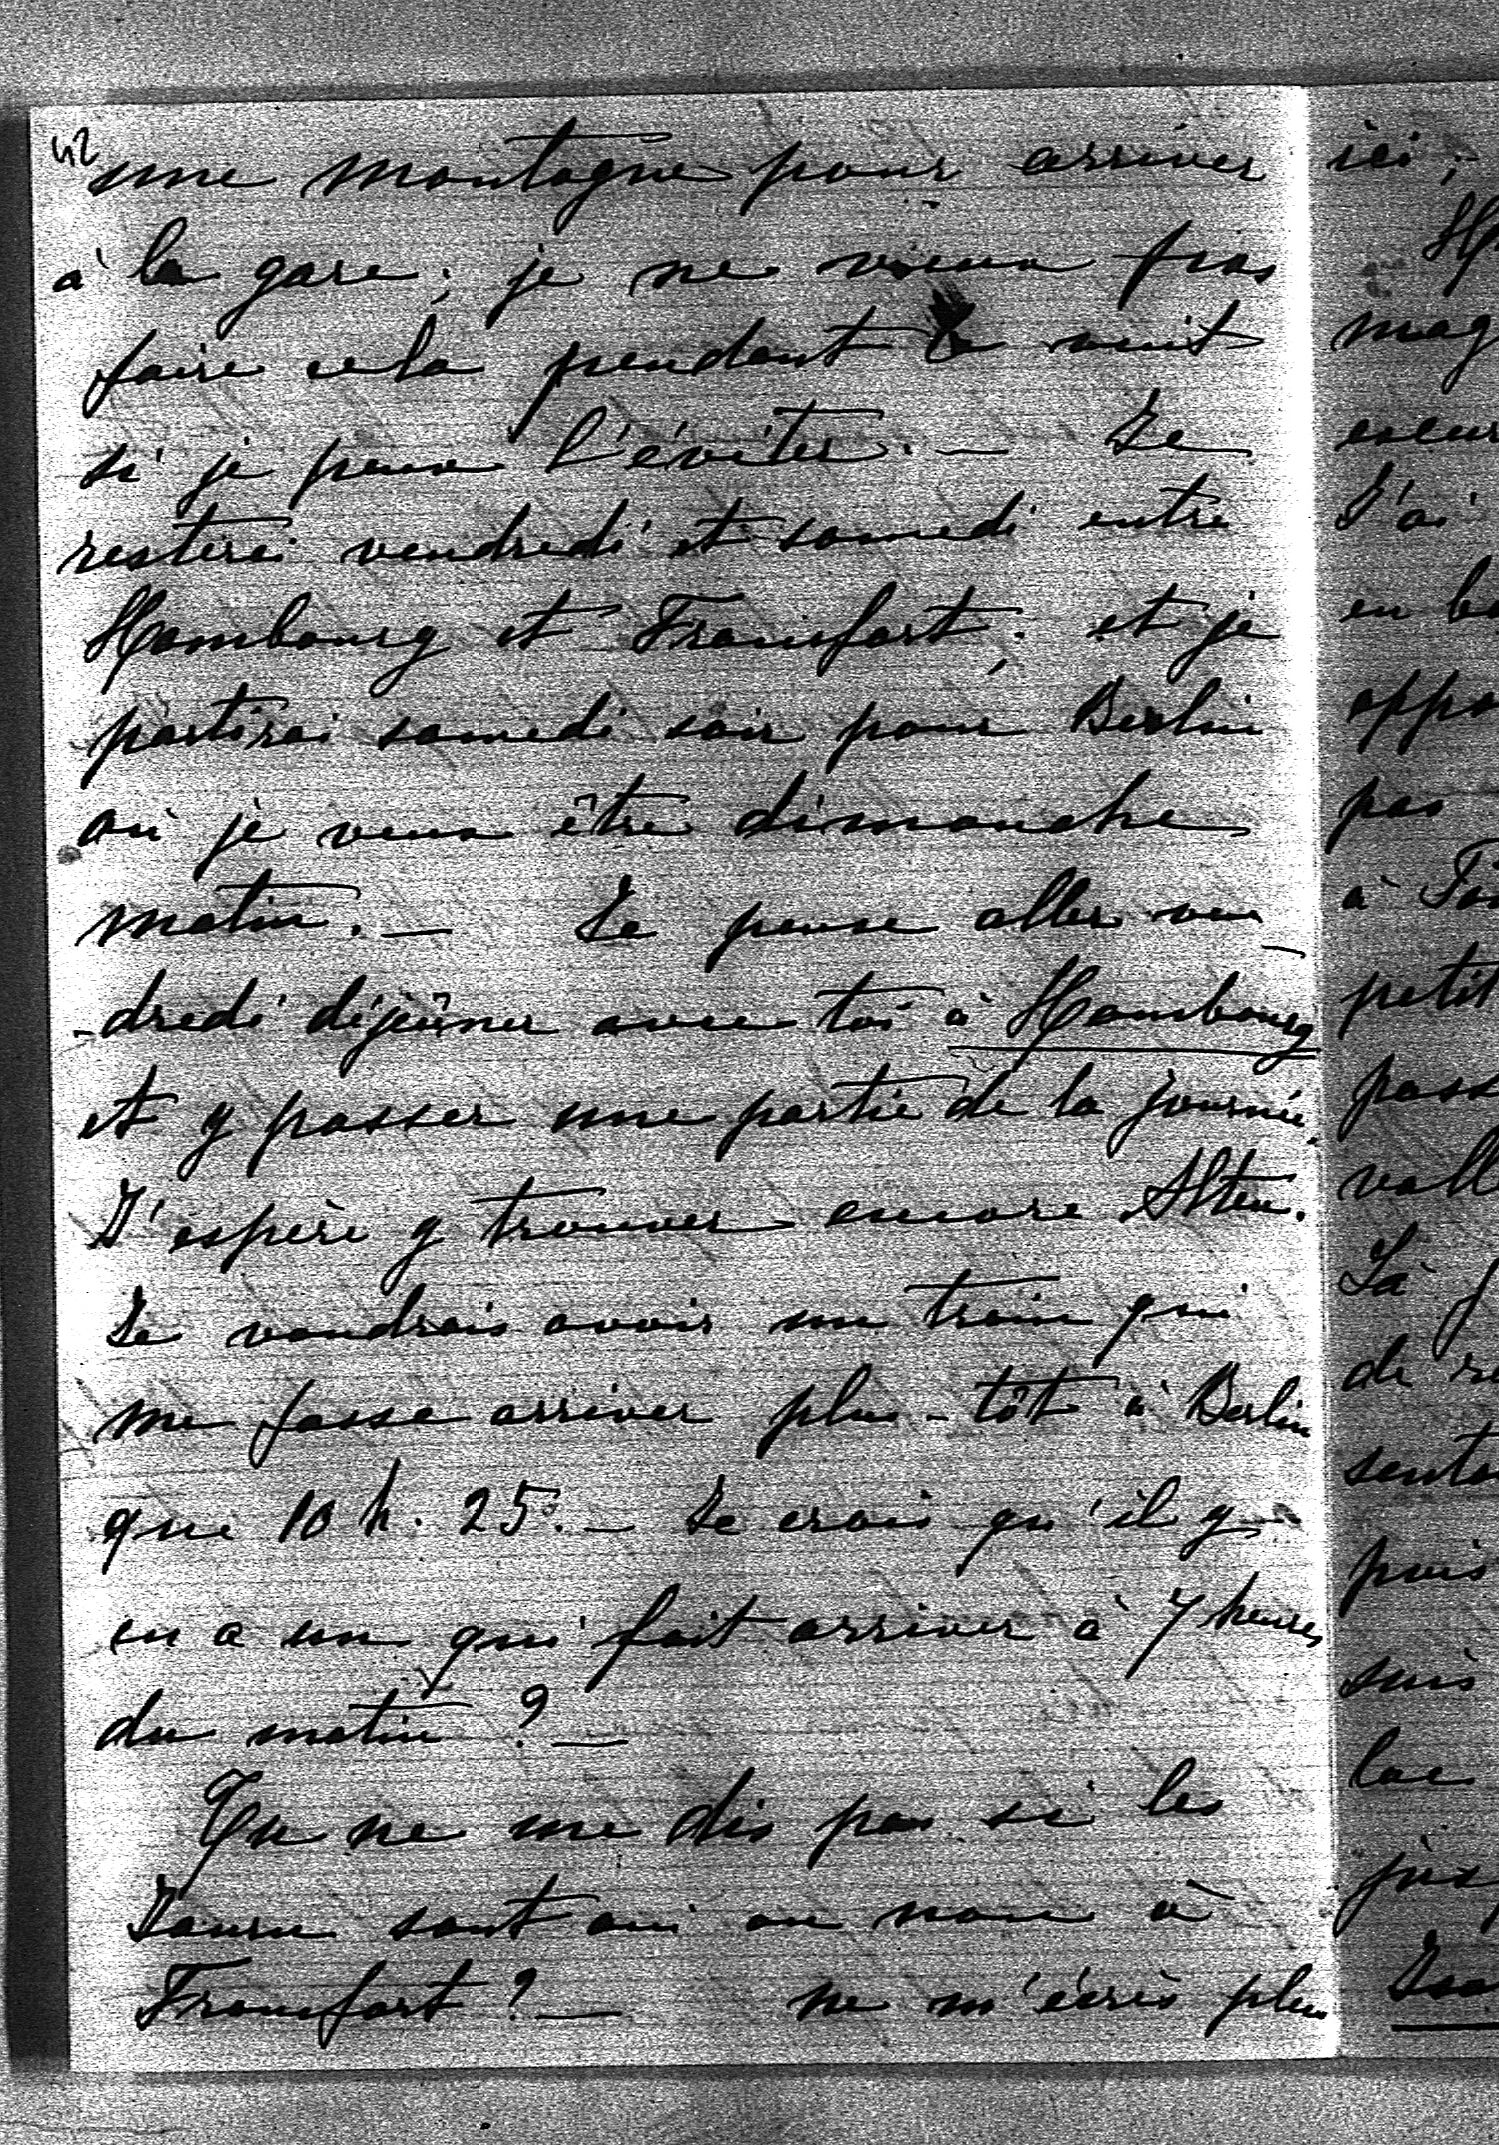 42
une montagne pour arriver
à la gare; je ne veux pas
faire cela pendant la nuit
si je peux l'éviter. — Je
resterai vendredi et samedi entre
Hombourg et Francfort; et je
partirai samedi soir pour Berlin
où je veux être dimanche
matin. — Je pense aller ven
-dredi déjeûner avec toi à Hombourg
et y passer une partie de la journée.
J'espère y trouver encore Alten.
Je voudrais avoir un train qui
me fasse arriver plus-tôt à Berlin
que 10 h. 25. — Je crois qu'il y
en a un qui fait arriver à 7 heures
du matin ? —
Tu ne me dis pas si les
sont oui ou non à
Francfort ? — ne m'écris plus
ici;
J'ai
pas
à
petit
Là
de
puis
suis
lac